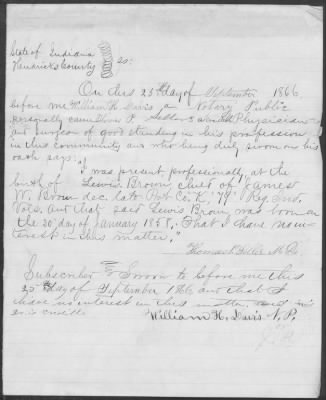 State of Indiana
Hendricks County } ss:
On this 25th day of September 1866
before me William H. Davis a Notary Public
personally came Thomas P Seller a Physician
and surgeon of good standing in his profession
in this community and who being duly sworn on his
oath says:
"I was present professionally at the
birth of Lewis Brown child of James
W. Brown dec. late Co. "K," Reg. Ind.
Vols. and that said Lewis Brown was born on
the 20 day of January 185 That I have no in-
terest in this matter."
Thomas P. Seller M.D.
Subscribed & Sworn to before me this
25 day of September 1866 and that I
have no interest in this matter
William H. Davis N.P.